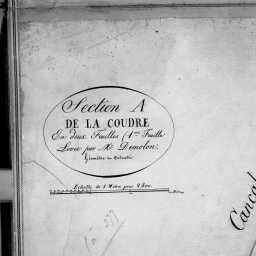 Section A
DE LA COUDRE
En deux Feuilles (1ere Feuille)
Levée par Mr. Demolon.
Géomètre du Cadastre
Echelle de 1 Mètre pour 2500.